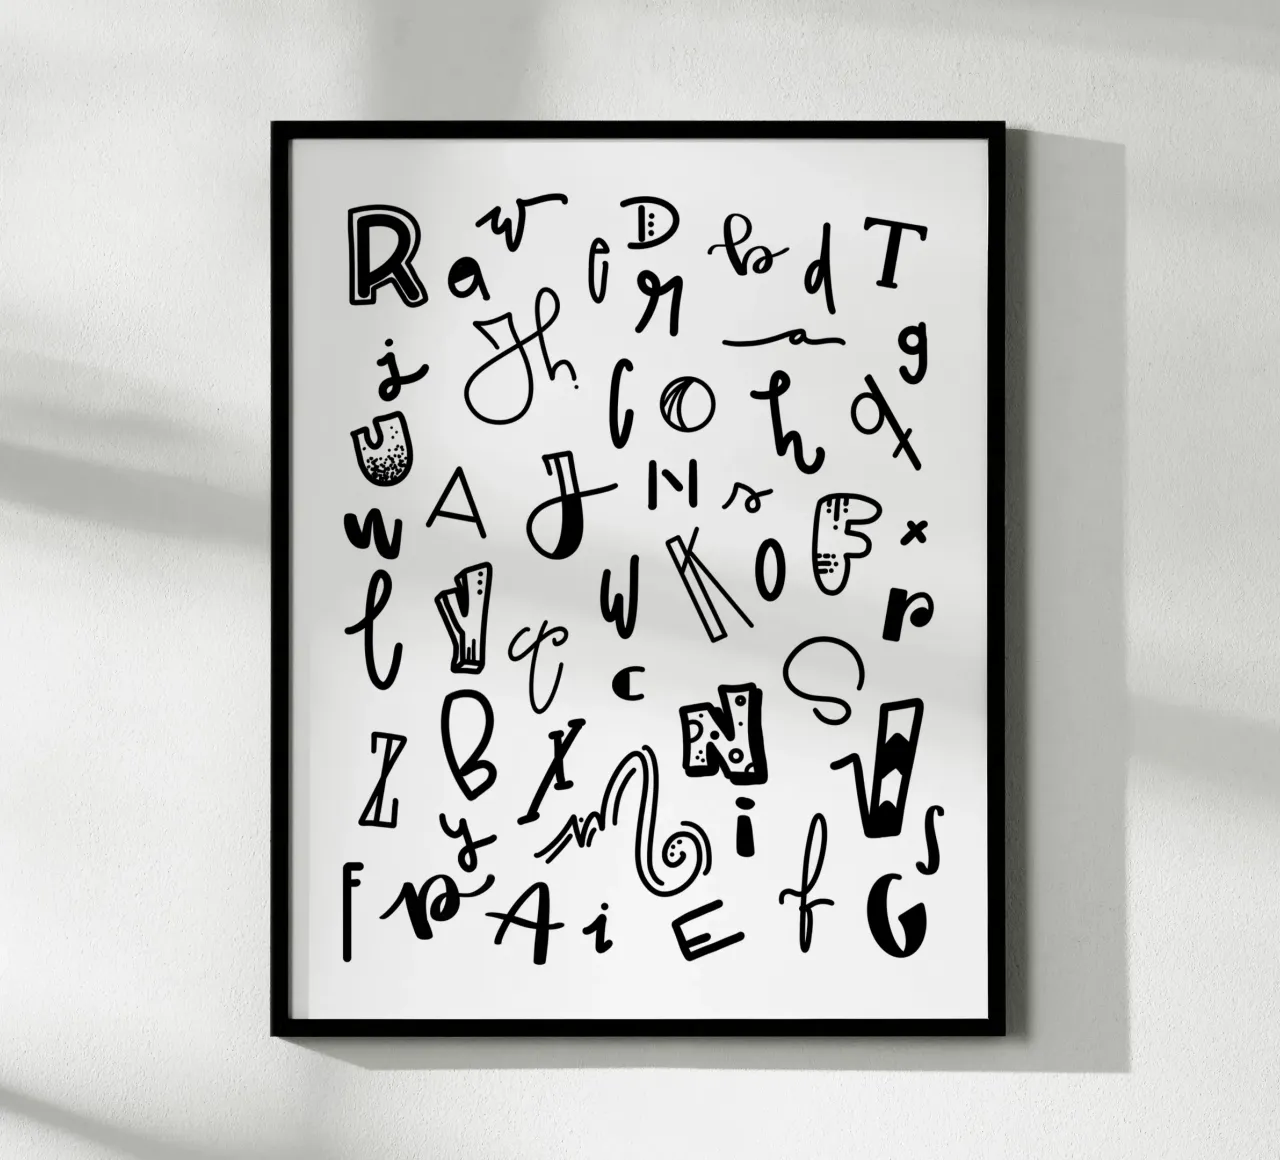 R a w e D b d T
j Jh r a g
U C O h q
w A J N s F x
l Y q W K O r
c S
Z B X N V
y m i f s
F p A i E G